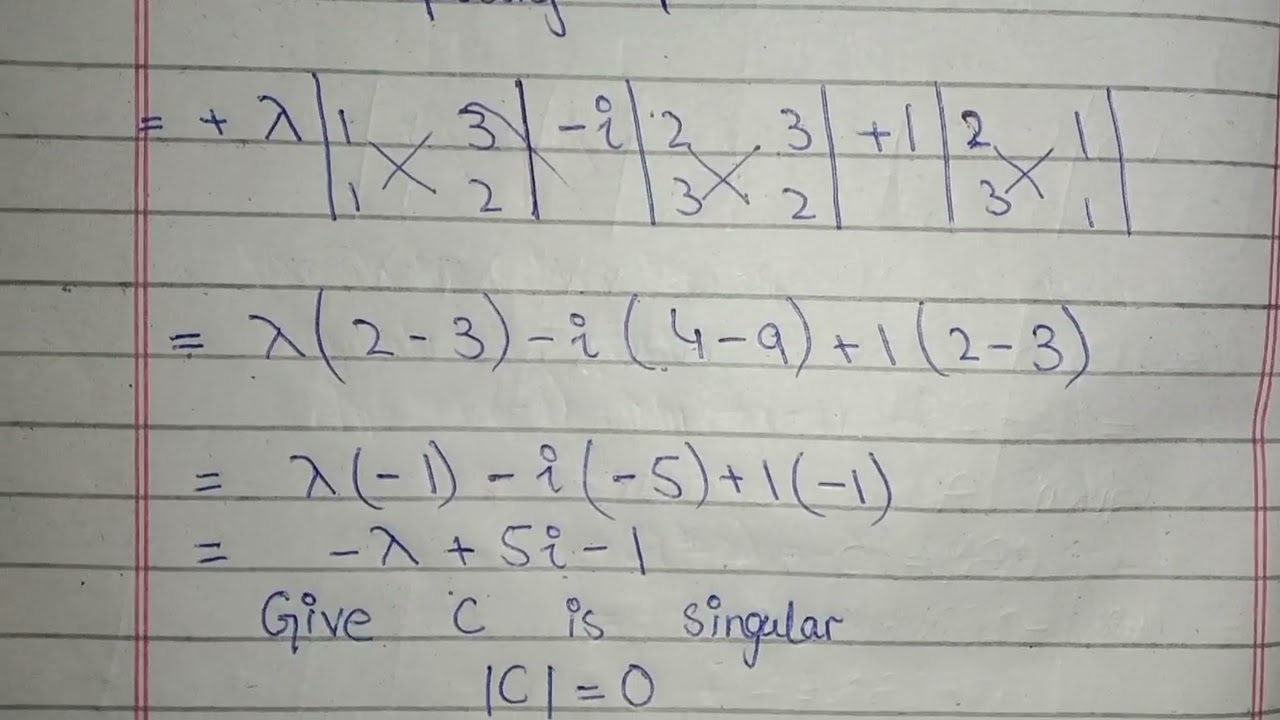 = + λ | 1 3 | - i | 2 3 | + 1 | 2 1 |
| 1 2 | | 3 2 | | 3 1 |
= λ(2 - 3) - i(4 - 9) + 1(2 - 3)
= λ(-1) - i(-5) + 1(-1)
= -λ + 5i - 1
Give C is singular
|C| = 0